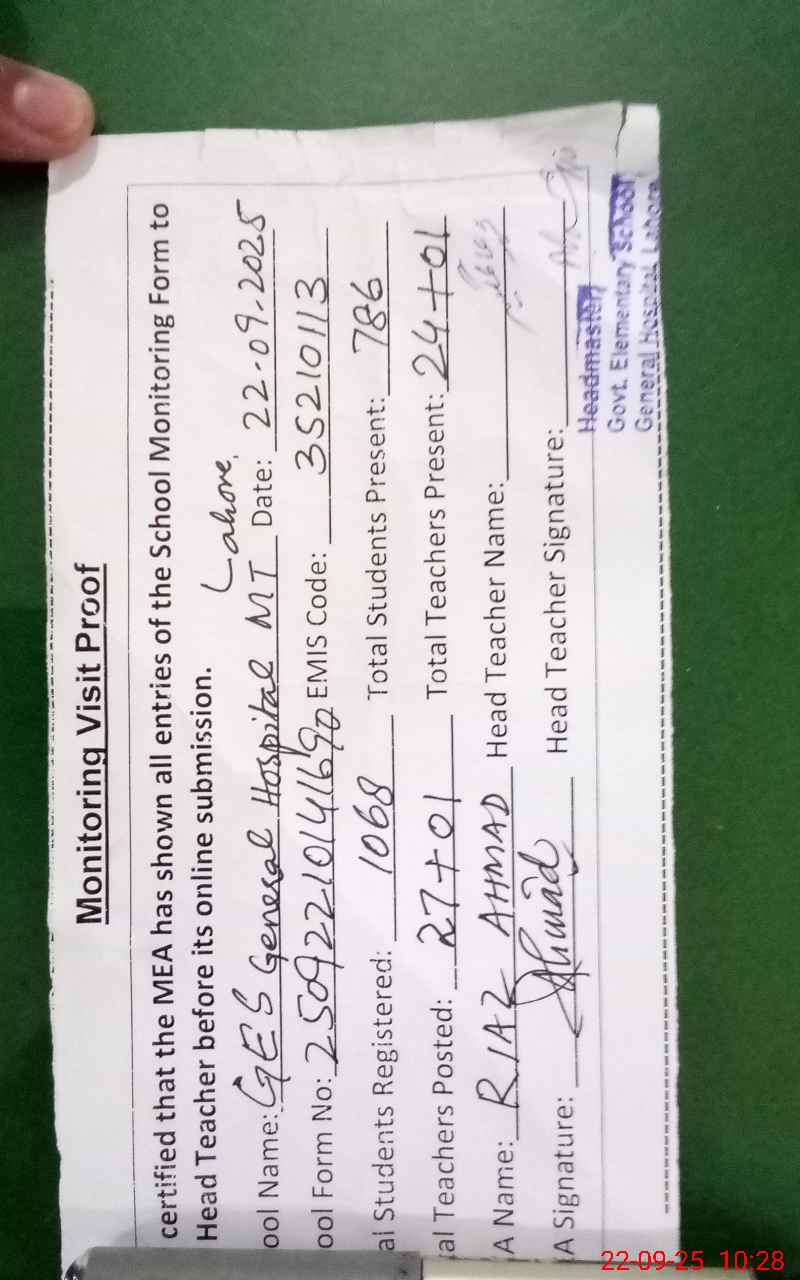 Monitoring Visit Proof
certified that the MEA has shown all entries of the School Monitoring Form to
Head Teacher before its online submission.
ool Name: GES General Hospital MT Lahore. Date: 22-09-2025
ool Form No: 25092210141690 EMIS Code: 35210113
al Students Registered: 1068 Total Students Present: 786
al Teachers Posted: 27+01 Total Teachers Present: 24+01
A Name: RIAZ AHMAD Head Teacher Name:
A Signature: Ahmad Head Teacher Signature:
Headmaster
Govt. Elementary School
General Hospital, Lahore
22-09-25 10:28